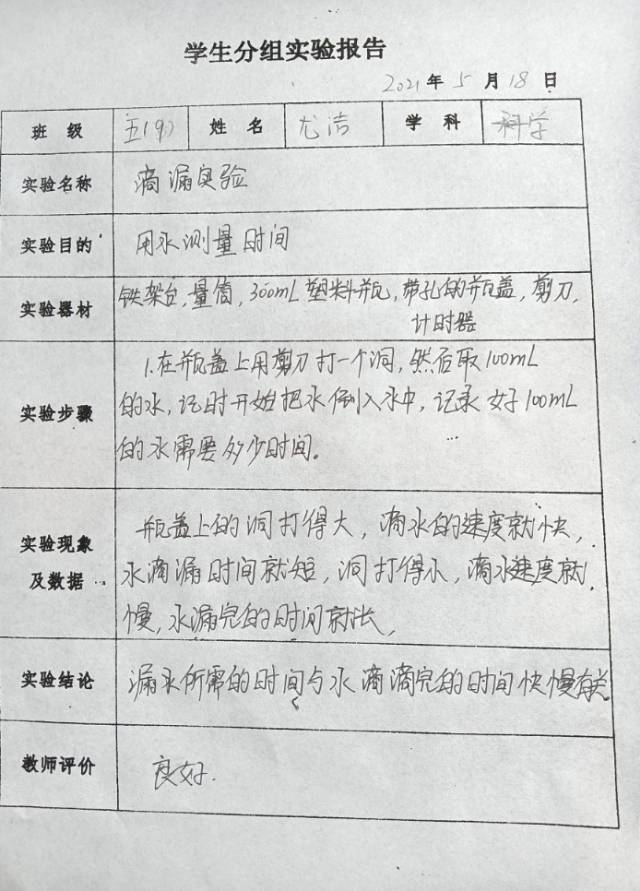 学生分组实验报告
2021年5月18日
班 级 五(9) 姓 名 尤洁 学 科 科学
实验名称 滴漏实验
实验目的 用水测量时间
实验器材 铁架台,量筒,300mL塑料瓶,带孔的瓶盖,剪刀,
计时器
1.在瓶盖上用剪刀打一个洞,然后取100mL
实验步骤 的水,记时开始把水倒入水中,记录好100mL
的水需要多少时间.
瓶盖上的洞打得大,滴水的速度就快,
实验现象及数据 水滴漏时间就短,洞打得小,滴水速度就
慢,水漏完的时间就长,
实验结论 漏水所需的时间与水滴滴完的时间快慢有关
教师评价 良好.